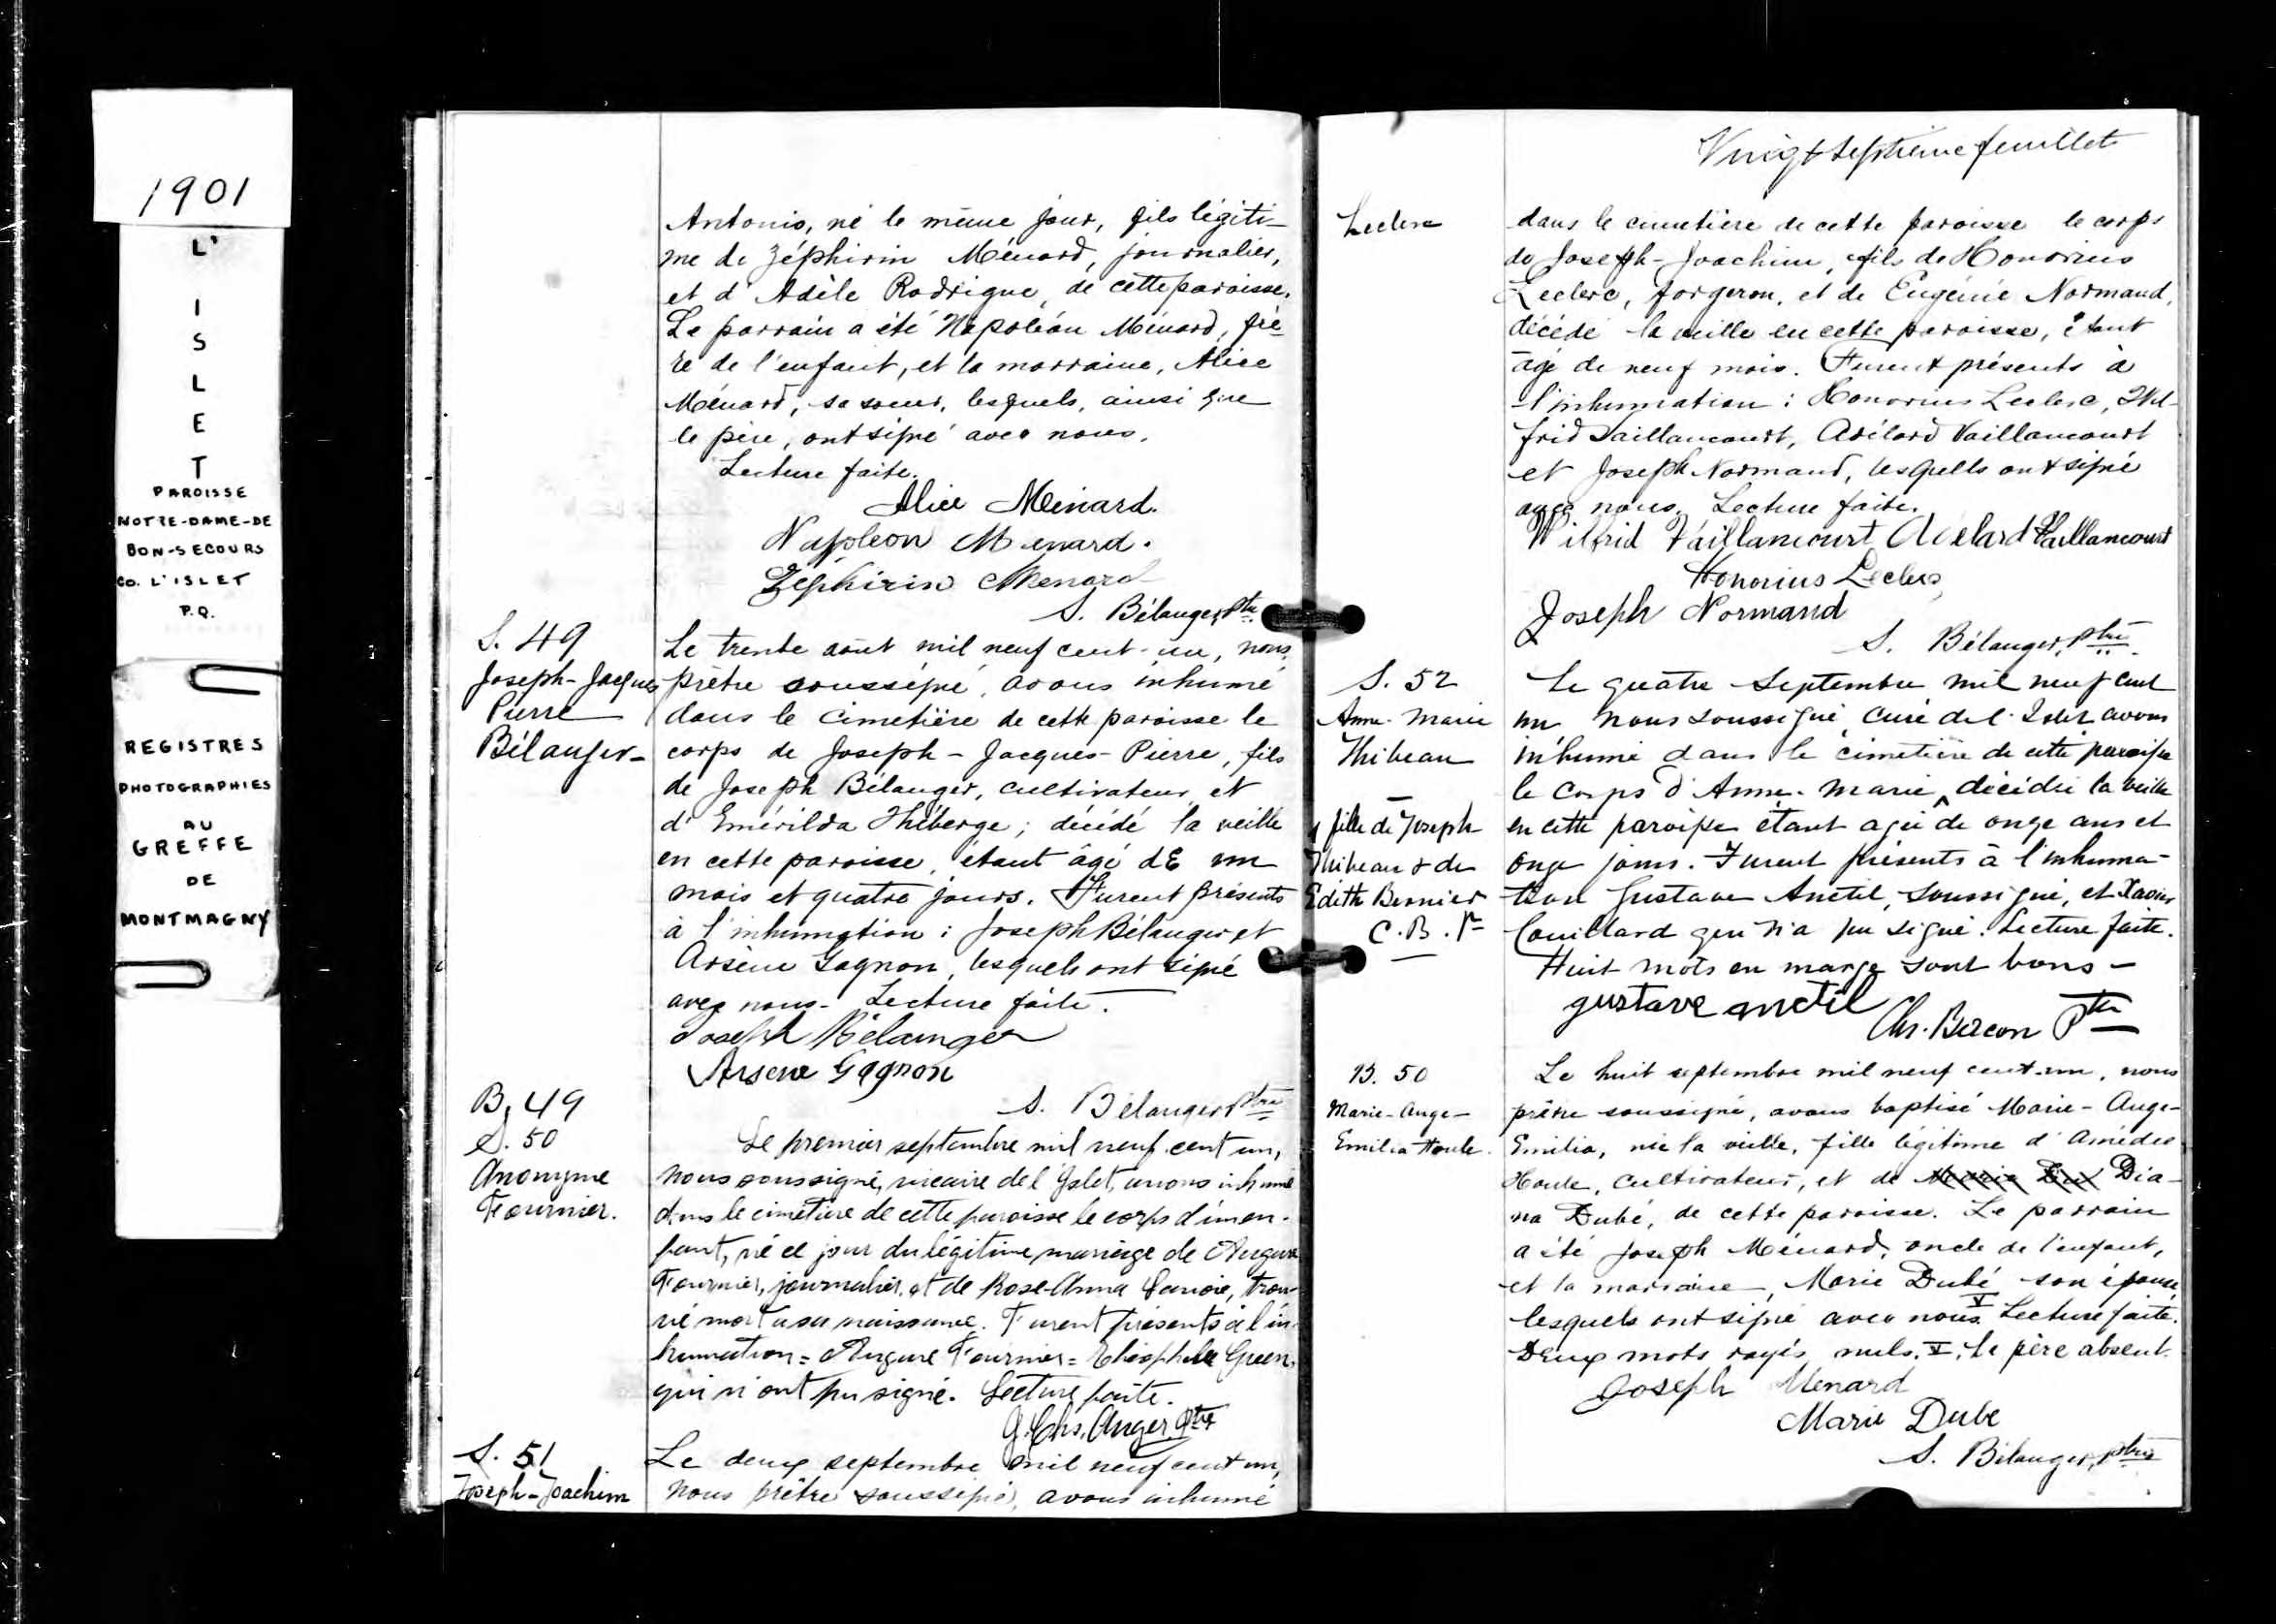 1901
L'
I
S
L
E
T
PAROISSE
NOTRE-DAME-DE
BON-SECOURS
Co. L'ISLET
P.Q.
REGISTRES
PHOTOGRAPHIES
AU
GREFFE
DE
MONTMAGNY
Antonio, né le même jour, fils légiti-
me de Zéphirin Ménard, journalier,
et d'Adèle Rodrigue, de cette paroisse.
Le parrain a été Napoléon Ménard, frè-
re de l'enfant, et la marraine, Alice
Ménard, sa soeur, lesquels, ainsi que
le père, ont signé avec nous.
Lecture faite.
Alice Menard.
Napoleon Menard.
Zéphirin Menard
S. Bélanger, Ptre
S. 49
Joseph-Jacques
Pierre
Bélanger
Le trente août mil neuf cent-un, nous,
prêtre soussigné, avons inhumé
dans le cimetière de cette paroisse le
corps de Joseph-Jacques-Pierre, fils
de Joseph Bélanger, cultivateur, et
d'Emérilda Théberge; décédé la veille
en cette paroisse, étant âgé dE un
mois et quatre jours. Furent présents
à l'inhumation: Joseph Bélanger et
Arsène Gagnon, lesquels ont signé
avec nous- Lecture faite.
Joseph Bélanger
Arsene Gagnon
S. Bélanger, Ptre
B. 49
S. 50
Anonyme
Fournier.
Le premier septembre mil neuf cent un,
nous soussigné, vicaire de l'Islet, avons inhumé
dans le cimetière de cette paroisse le corps d'un en-
fant, né ce jour du légitime mariage de
Fournier, journalier, et de Rose-Anna Lavoie, trou-
vé mort à sa naissance. Furent présents à l'in-
humation = Fournier = Théophile Green,
qui n'ont pu signé. Lecture faite.
J. Chs. Anger, Ptre
S. 51
Joseph-Joachim
Le deux septembre mil neuf cent un,
nous prêtre soussigné, avons inhumé
Vingt septieme feuillet
Leclerc
dans le cimetière de cette paroisse le corps
de Joseph-Joachim, fils de Honorius
Leclerc, forgeron, et de Eugénie Normand,
décédé la veille en cette paroisse, étant
âgé de neuf mois. Furent présents à
l'inhumation: Honorius Leclerc, Wil-
frid Vaillancourt, Adélard Vaillancourt
et Joseph Normand, lesquels ont signé
avec nous. Lecture faite.
Wilfrid Vaillancourt Adelard Vaillancourt
Honorius Leclerc
Joseph Normand
S. Bélanger, Ptre
S. 52
Anne-Marie
Thibeau
Le quatre Septembre mil neuf cent
un nous soussigné, curé de l'Islet avons
inhumé dans le cimetière de cette paroisse
le corps d'Anne-Marie, décédée la veille
en cette paroisse étant agée de onze ans et
onze jours. Furent présents à l'inhuma-
tion Gustave Anctil, soussigné, et Xavier
Couillard qui n'a pu signé. Lecture faite.
Huit mots en marge sont bons -
fille de Joseph
Thibeau & de
Edith Bernier
C. B. Ptre
gustave anctil
Chs. Bacon Ptre
B. 50
Marie-Ange-
Emilia Houle.
Le huit septembre mil neuf cent-un, nous
prêtre soussigné, avons baptisé Marie-Ange-
Emilia, née la veille, fille légitime d'Amédée
Houle, cultivateur, et de Marie Du Dia-
na Dubé, de cette paroisse. Le parrain
a été Joseph Ménard, oncle de l'enfant,
et la marraine, Marie Dubé son épouse,
lesquels ont signé avec nous. Lecture faite.
Deux mots rayés nuls. le père absent.
Joseph Menard
Marie Dube
S. Bélanger, ptre